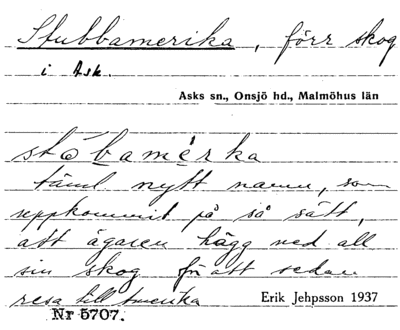 Stubbamerika, förr skog
i Ask.
Asks sn., Onsjö hd., Malmöhus län
stobamérka
täml nytt namn, som
uppkommit på så sätt,
att ägaren högg ned all
sin skog för att sedan
resa till Amerika
Erik Jehpsson 1937
Nr 5707.